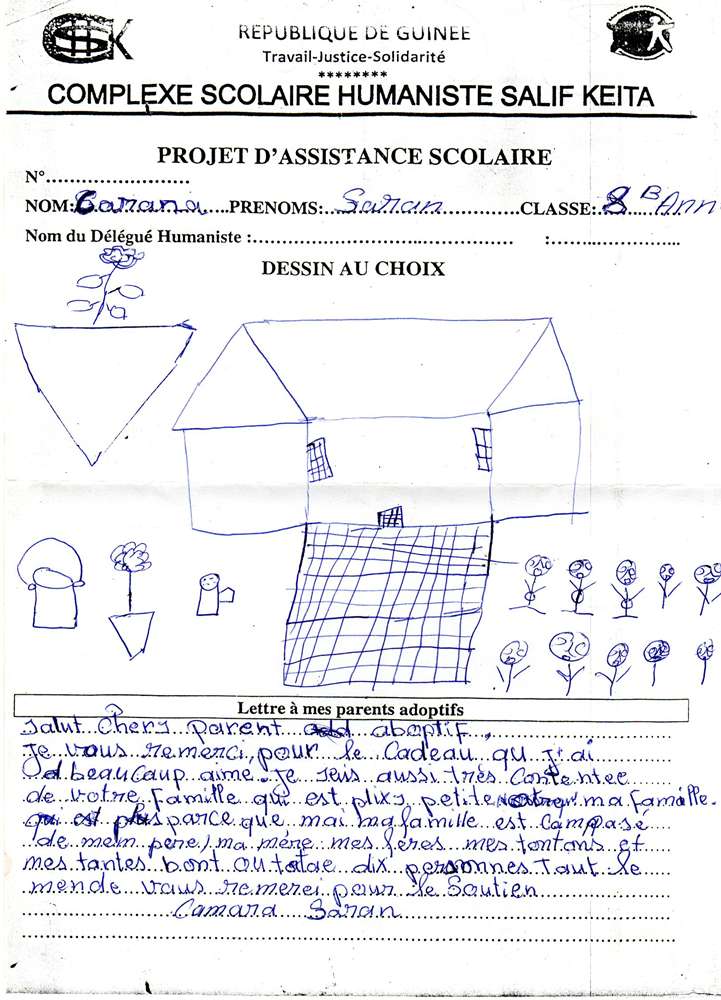 REPUBLIQUE DE GUINEE
Travail-Justice-Solidarité
********
COMPLEXE SCOLAIRE HUMANISTE SALIF KEITA
PROJET D'ASSISTANCE SCOLAIRE
N°........................
NOM: Camara PRENOMS: Saran CLASSE: 8 B Ann
Nom du Délégué Humaniste :............................................. :......................
DESSIN AU CHOIX
Lettre à mes parents adoptifs
Salut Chers parent aboptif,
Je vous remerci, pour le Cadeau qu j'ai
beaucaup aime. je suis aussi très Contentee
de votre famille qui est plixs petite ma famille.
parce que mai ma famille est campasé
de mem pere, ma mère mes fères mes tontons et
mes tantes bont au totae dix personnes Taut le
mende vaus remerci pour le Soutien
Camara Saran